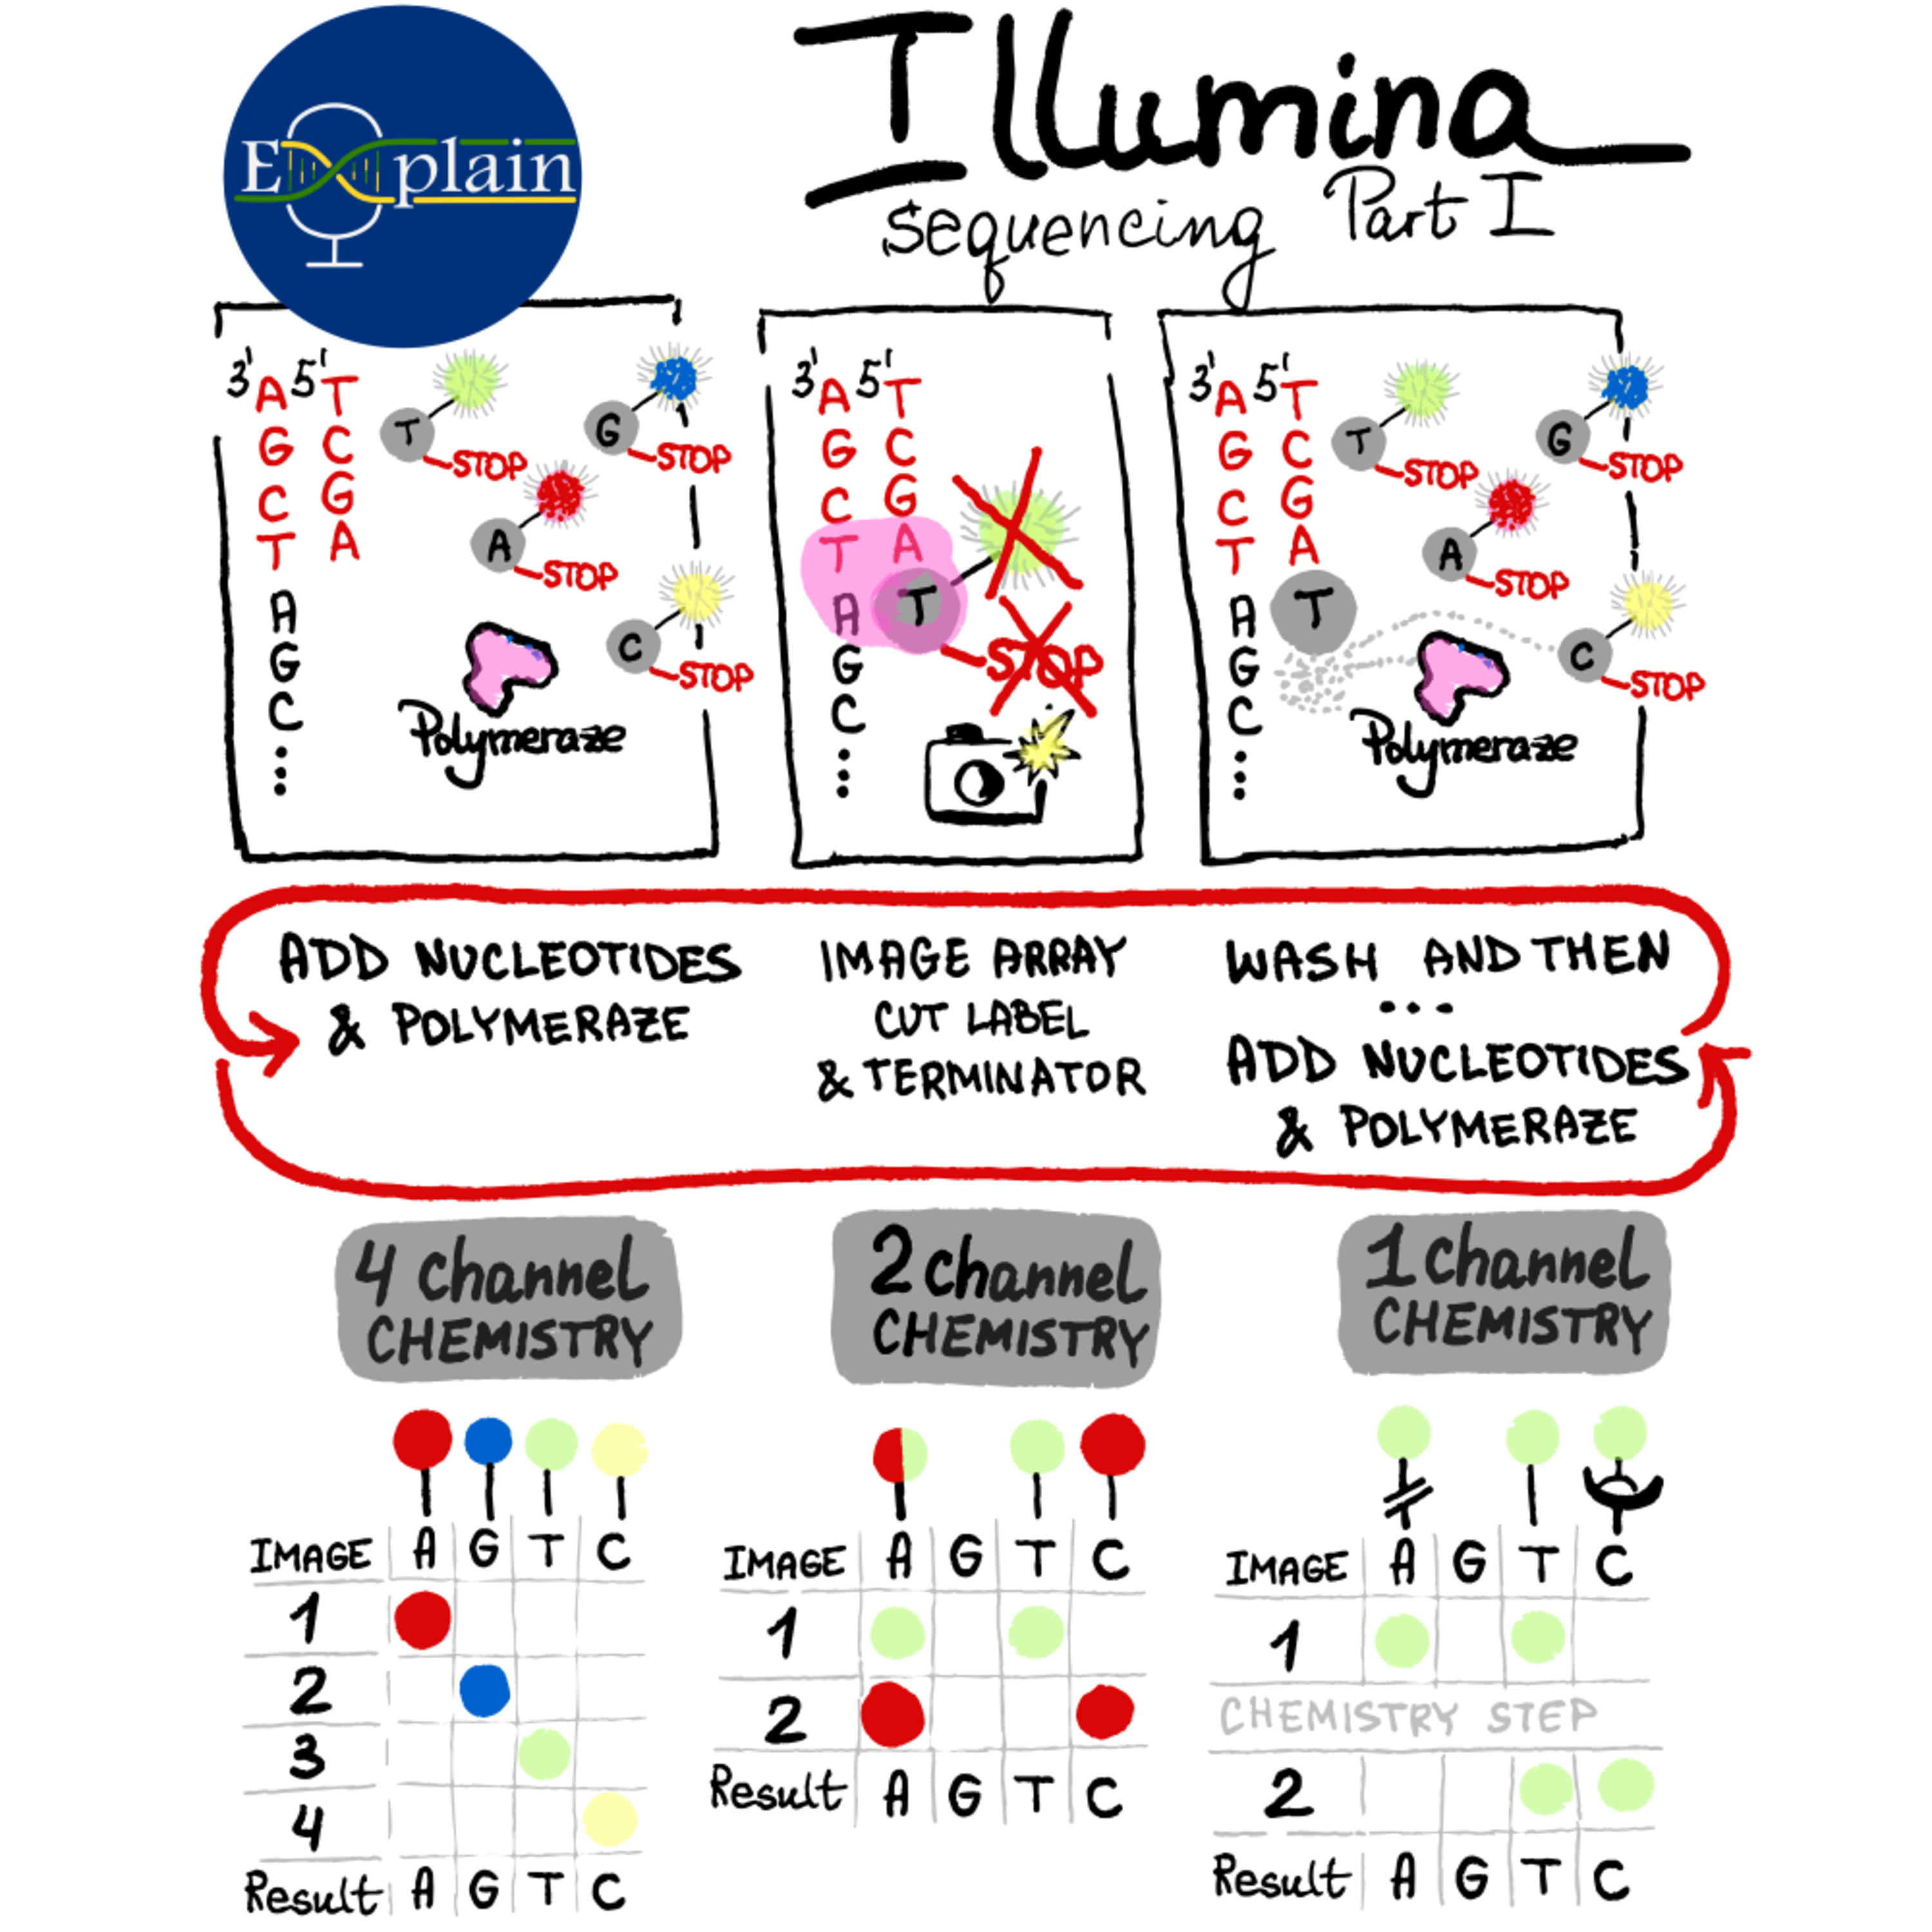 Explain
Illumina
sequencing Part I
3' A 5' T
G C
C G
T A
A
G
C
⋮
T
STOP
G
STOP
A
STOP
C
STOP
Polymeraze
3' A 5' T
G C
C G
T A
A T
G STOP
C
⋮
3' A 5' T
G C
C G
T A
A T
G
C
⋮
T
STOP
G
STOP
A
STOP
C
STOP
Polymeraze
ADD NUCLEOTIDES
& POLYMERAZE
IMAGE ARRAY
CUT LABEL
& TERMINATOR
WASH AND THEN
...
ADD NUCLEOTIDES
& POLYMERAZE
4 channel
CHEMISTRY
IMAGE A G T C
1
2
3
4
Result A G T C
2 channel
CHEMISTRY
IMAGE A G T C
1
2
Result A G T C
1 channel
CHEMISTRY
IMAGE A G T C
1
CHEMISTRY STEP
2
Result A G T C